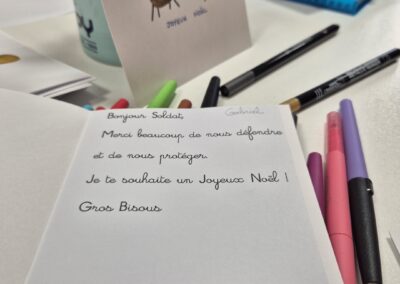 JOYEUX NOËL
Bonjour Soldat, Gabriel
Merci beaucoup de nous défendre
et de nous protéger.
Je te souhaite un Joyeux Noël !
Gros Bisous